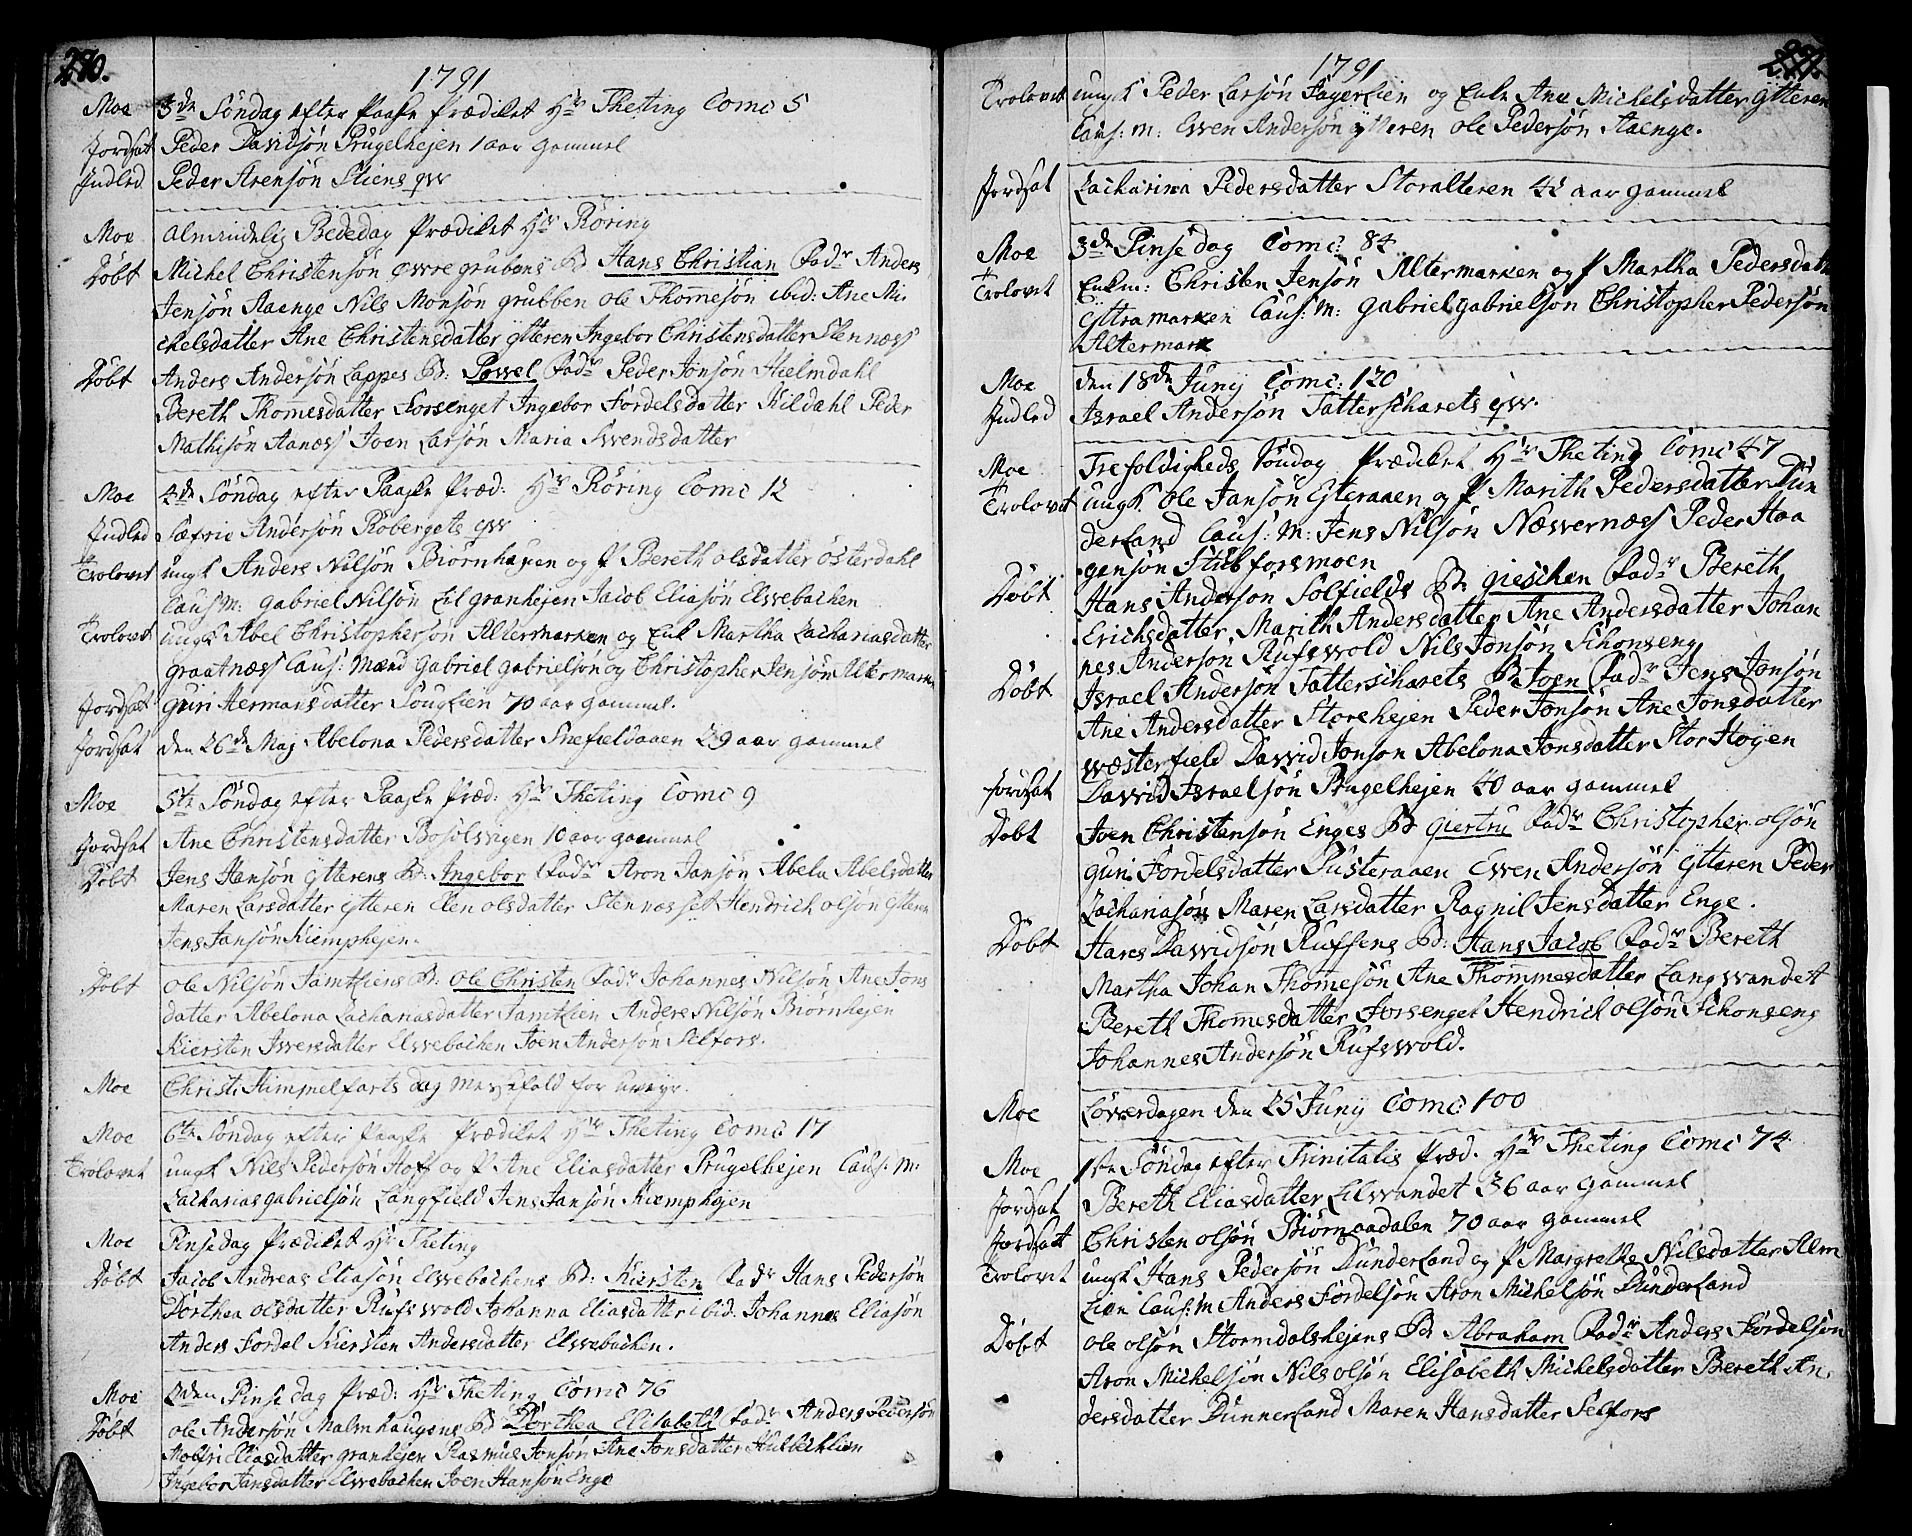 270.
1791
Moe 3de Søndag efter Paaske Prædiket Hr Theting Comc 5
Jordsat Peder Davidsøn Prugelhejen 1 aar gammel
Indled Peder Arensøn Sliens qv
Moe Almindelig Bededag Prædiket Hr Røring
Døbt Michel Christensøn Owregrubens B Hans Christian Fadr Anders
Jensøn Aaenge Nils Monsøn grubben ole Thomesøn ibid: Ane Mi-
chelsdatter Ane Christensdatter Ytteren Ingebor Christensdatter Stennæss
Døbt Anders Andersøn Lappes B: Povel Fadr Peder Jonsøn Hielmdahl
Bereth Thomesdatter Forsenget Ingebor Fordelsdatter Kildahl Peder
Mathisøn Aanæss Joen Larsøn Maria Swendsdatter
Moe 4de Søndag efter Paaske Præd: Hr Røring Comc 12
Indled Sæfrie Andersøn Røbergets qv
Trolovet ungk Anders Nilsøn Biørnhejen og P Bereth olsdatter Østerdahl
Caus M: Gabriel Nilsøn Lilgranhejen Jacob Eliasøn Elvebachen
Trolovet ungk Abel Christophersøn Altermarken og Enk Martha Zachariasdatter
graatnæss Caus: Mænd Gabriel Gabrielsøn og Christopher Jensøn Altermarken
Jordsat Guri Hermansdatter Souglien 70 aar gammel.
Jordsat den 26de Maj Abelona Pedersdatter Snefieldaaen 29 aar gammel
Moe 5te Søndag efter Paaske Præd: Hr Theting Comc 9
Jordsat Ane Christensdatter Bosolvigen 10 aar gammel
Døbt Jens Hansøn Ytterens B: Ingebor Fadr Aron Jansøn Abela Abelsdatter
Maren Larsdatter Ytteren Elen olsdatter Stennæsset Hendrich olsøn Ytteren
Jens Jansøn Kiemphejen.
Døbt ole Nilsøn Jamtliens B: ole Christen Fadr Johannes Nilsøn Ane Jons
datter Abelona Zachariasdatter Jamtlien Anders Nilsøn Biørnhejen
Kiersten Iversdatter Elvebachen Joen Andersøn Selfors.
Moe Christi Himmelfarts dag Messefald for Uveyr.
Moe 6te Søndag efter Paaske Prædiket Hr Theting Comc 17
Trolovet ungk Nils Pedersøn Hoff og P Ane Eliasdatter Prugelhejen Caus: M:
Zacharias Gabrielsøn Langfield Jens Jansøn Kiemphejen
Moe Pinsedag Prædiket Hr Theting
Døbt Jacob Andreas Eliasøn Elvebachens B: Kiersten Fadr Hans Pedersøn
Dorthea olsdatter Rufswold Johanna Eliasdatter ibid: Johannes Eliasøn
Anders Fordel Kiersten Andersdatter Elvebachen.
Moe 2den Pinsedag Præd: Hr Theting Comc 76
Døbt ole Andersøn Malmhaugens B Dorthea Elisabeth Fadr Anders Pedersøn
Eliasdatter granhejen Rasmus Jonsøn Ane Jonsdatter
Ingebor Jansdatter Elvebachen Joen Hansøn Enge
1791
Trolovet ungk Peder Larsøn Fagerlien og Enke Ane Michelsdatter Ytteren
Caus: M: Ewen Andersøn Ytteren ole Pedersøn Aaenge.
Jordsat Zacharina Pedersdatter Storalteren 42 aar gammel
Moe 3de Pinsedag Comc: 84
Trolovet Enkm: Christen Jensøn Altermarken og P Martha Pedersdatter
Yttramarken Caus: M: Gabriel Gabrielsøn Christopher Pedersøn
Altermark
Moe den 18de Junij Comc: 120
Indled Israel Andersøn Tatterscharets qv.
Moe Trefoldigheds Søndag Prædiket Hr Theting Comc 47
Trolovet ungk Ole Jansøn Ytteraaen og P Marith Pedersdatter Dun
derland Caus: M: Jens Nilsøn Næwernæss Peder Haa
gensøn Stubforsmoen
Døbt Hans Andersøn Solfields B giesken Fadr Bereth
Erichsdatter, Marith Andersdatter Ane Andersdatter Johan
nes Andersøn Rufswold Nils Jonsøn Schonseng
Døbt Israel Andersøn Tatterscharets B Joen Fadr Jens Jonsøn
Ane Andersdatter Storehejen Peder Jonsøn Ane Jonsdatter
Wæsterfield David Jonsøn Abelona Jonsdatter Stor Høgen
Jordsat David Israelsøn Prugelhejen 40 aar gammel
Døbt Joen Christensøn Enges B Giertru Fadr Christopher olsøn
Guri Fordelsdatter Pusteraaen Ewen Andersøn Ytteren Peder
Zachariasøn Maren Larsdatter Ragnil Jensdatter Enge.
Døbt Hans Davidsøn Ruffsens B: Hans Jacob Fadr Bereth
Martha Johan Thomesøn Ane Thommesdatter Langwandet
Bereth Thomesdatter Forsenget Hendrich olsøn Schonseng
Johannes Andersøn Rufswold.
Moe Løverdagen den 25 Junij Comc: 100
Moe 1ste Søndag efter Trinitatis Præd. Hr Theting Comc 74
Jordsat Bereth Eliasdatter Lilwandet 36 aar gammel
Jordsatt Christen olsøn Biørnaadalen 70 aar gammel
Trolovet ungk Hans Pedersøn Dunderland og P Margrethe Nilsdatter Alm
Lien Caus: M Anders Fordelsøn Aron Michelsøn Dunderland
Døbt Ole olsøn Stormdalshejens B Abraham Fadr Anders Fordelsøn
Aron Michelsøn Nils olsøn Elisabeth Michelsdatter Bereth An-
dersdatter Dunnerland Maren Hansdatter Selfors